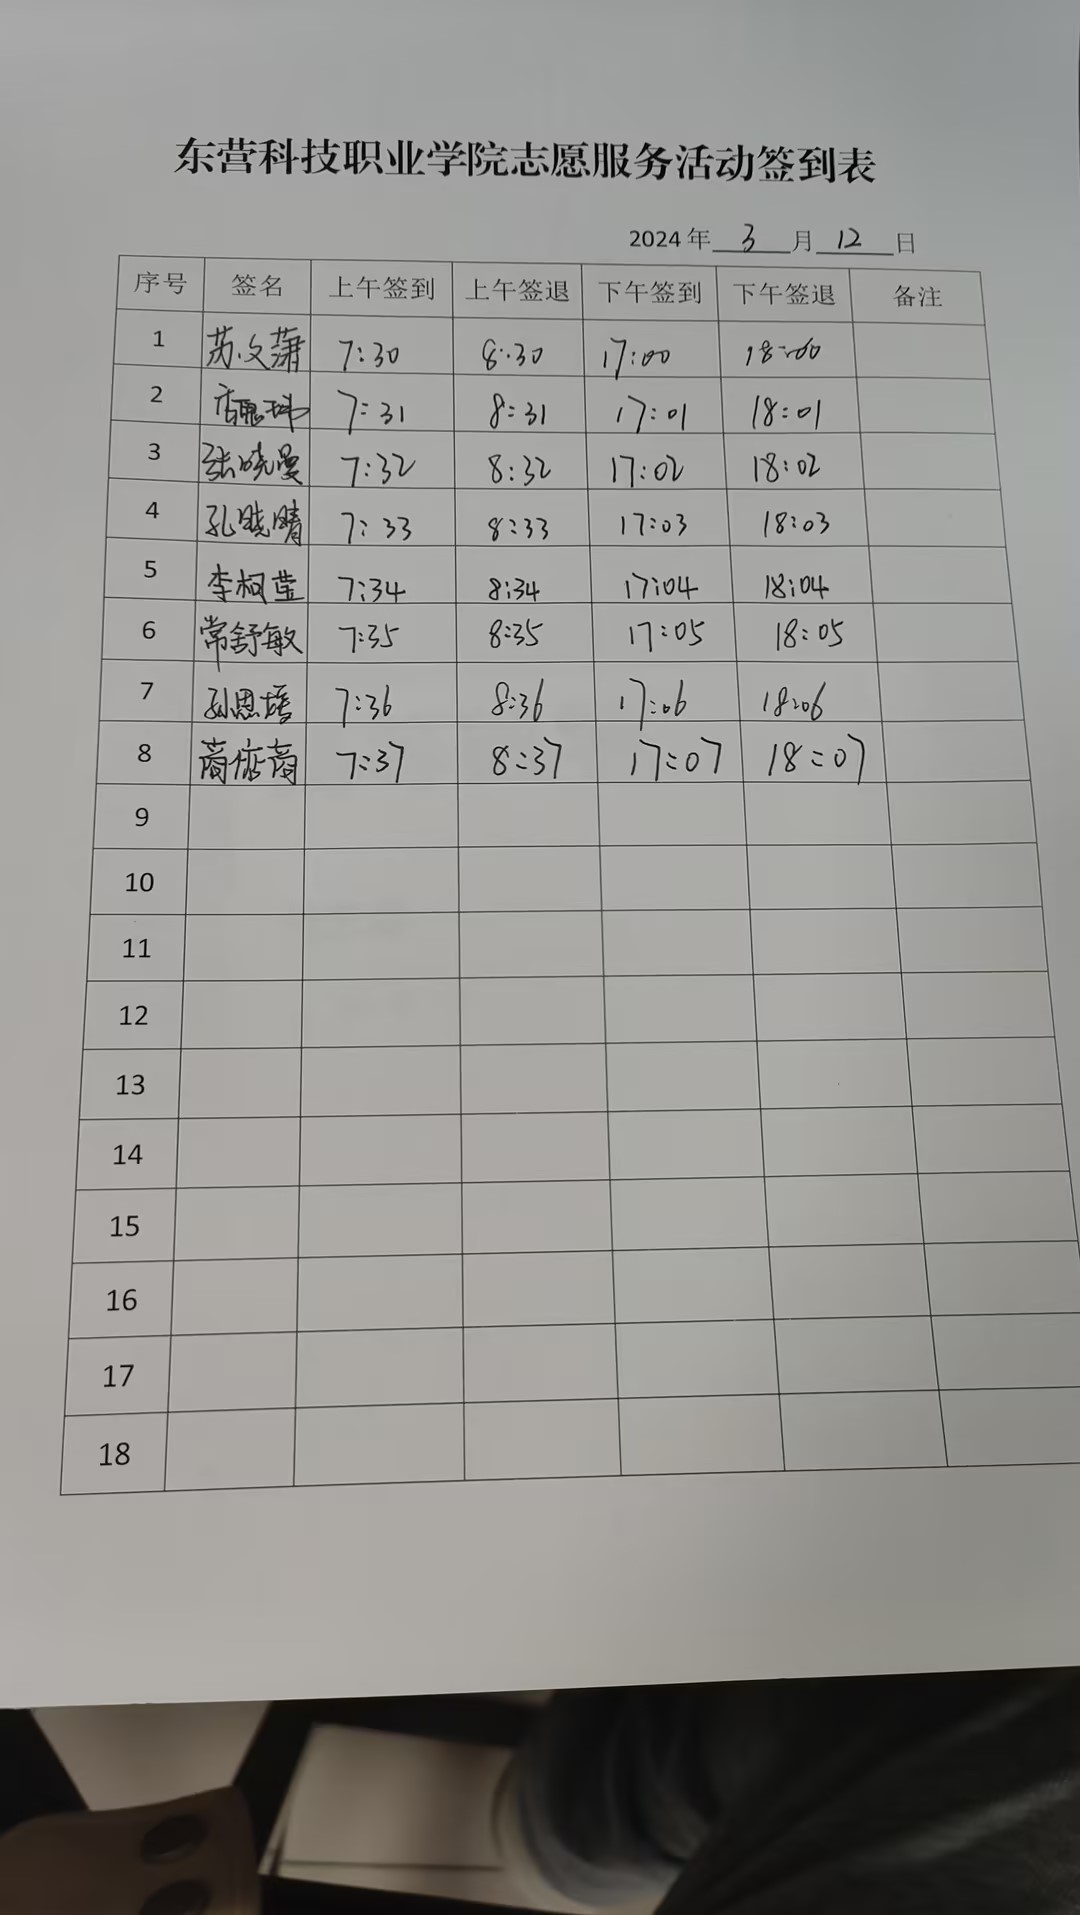 东营科技职业学院志愿服务活动签到表
2024 年 3 月 12 日
序号 签名 上午签到 上午签退 下午签到 下午签退 备注
1 苏文萧 7:30 8:30 17:00 18:00
2 7:31 8:31 17:01 18:01
3 张晓曼 7:32 8:32 17:02 18:02
4 孔晓晴 7:33 8:33 17:03 18:03
5 李柯莹 7:34 8:34 17:04 18:04
6 常舒敏 7:35 8:35 17:05 18:05
7 孙恩 7:36 8:36 17:06 18:06
8 7:37 8:37 17:07 18:07
9
10
11
12
13
14
15
16
17
18